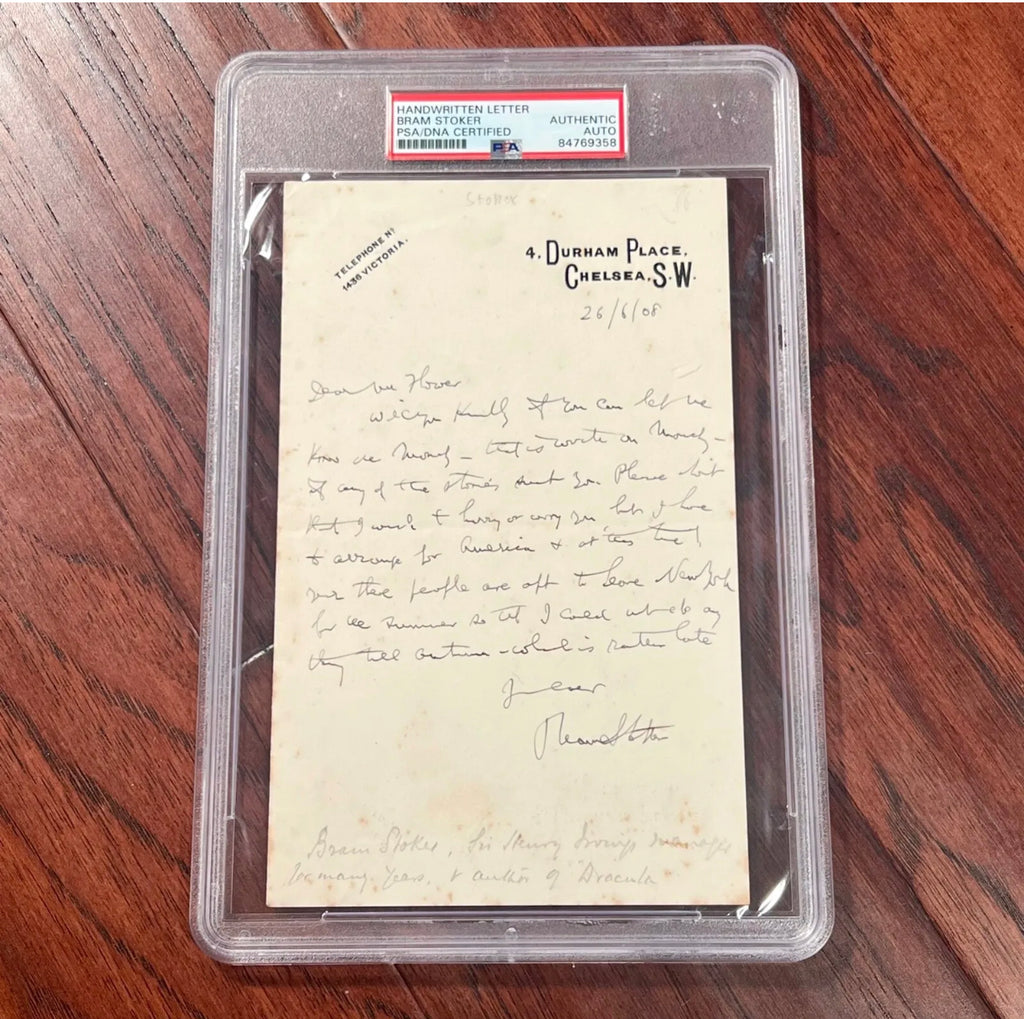 HANDWRITTEN LETTER
BRAM STOKER AUTHENTIC
PSA/DNA CERTIFIED AUTO
PSA 84769358
Stoker
TELEPHONE Nº
1436 VICTORIA.
4, DURHAM PLACE,
CHELSEA, S.W.
26/6/08
Dear Mr Flower
Will you kindly if you can let me
know on Monday – that is write on Monday –
if any of the stories suit you. Please don't
think I wish to hurry or worry you, but I have
to arrange for America & at this time
over there people are apt to leave New York
for the summer so that I could not do any
thing till autumn – which is rather late
Yours ever
Bram Stoker
Bram Stoker, Sir Henry Irving's manager
for many years, & author of Dracula